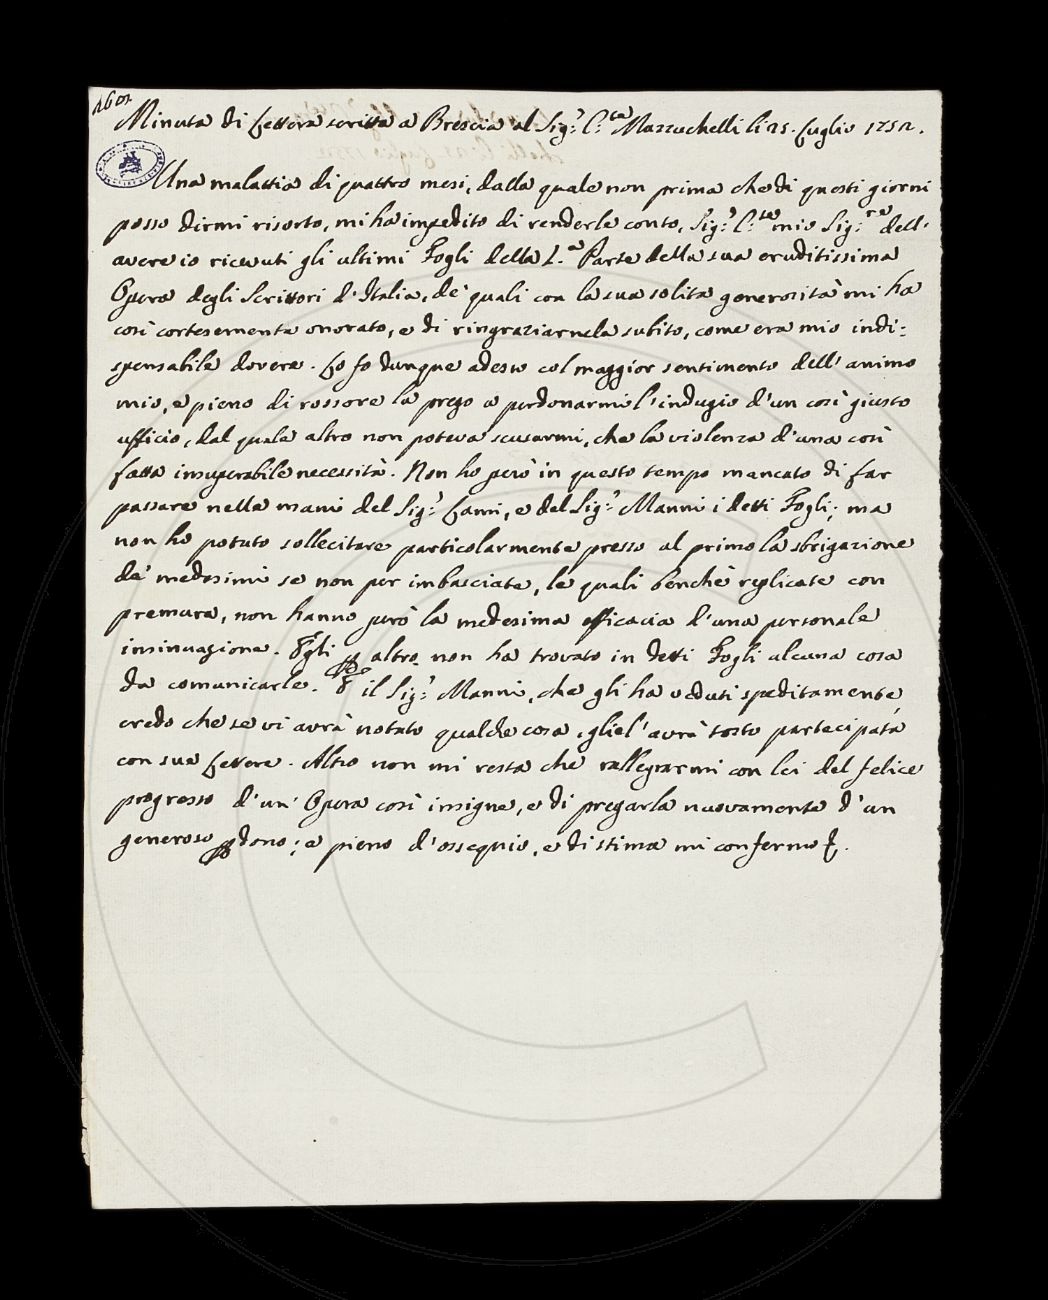 Minuta di Lettera scritta a Brescia al Sig.r C.te Mazzuchelli li 25. Luglio 1752.
Una malattia di quattro mesi, dalla quale non prima che di questi giorni
posso dirmi risorto, mi ha impedito di renderle conto, Sig.r C.te mio Sig.re dell'
avere io ricevuti gli ultimi Fogli della 2.a Parte della sua eruditissima
Opera degli Scrittori d'Italia, de' quali con la sua solita generosità mi ha
così cortesemente onorato, e di ringraziarnela subito, come era mio indi=
spensabile dovere. Lo fo dunque adesso col maggior sentimento dell'animo
mio, e pieno di rossore la prego a perdonarmi l'indugio d'un così giusto
ufficio, dal quale altro non poteva scusarmi, che la violenza d'una così
fatta insuperabile necessità. Non ho però in questo tempo mancato di far
passare nelle mani del Sig.r Lami, e del Sig.r Manni i detti Fogli; ma
non ho potuto sollecitare particolarmente presso al primo la sbrigazione
de' medesimi se non per imbasciate, le quali benchè replicate con
premura, non hanno però la medesima efficacia d'una personale
insinuazione. Egli altro non ha trovato in detti Fogli alcuna cosa
da comunicarle. il Sig.r Manni, che gli ha veduti speditamente
credo che se vi avrà notato qualche cosa, gliel'avrà tosto partecipata
con sua Lettera. Altro non mi resta che rallegrarmi con lei del felice
progresso d'un'Opera così insigne, e di pregarla nuovamente d'un
generoso perdono; e pieno d'ossequio, e di stima mi confermo